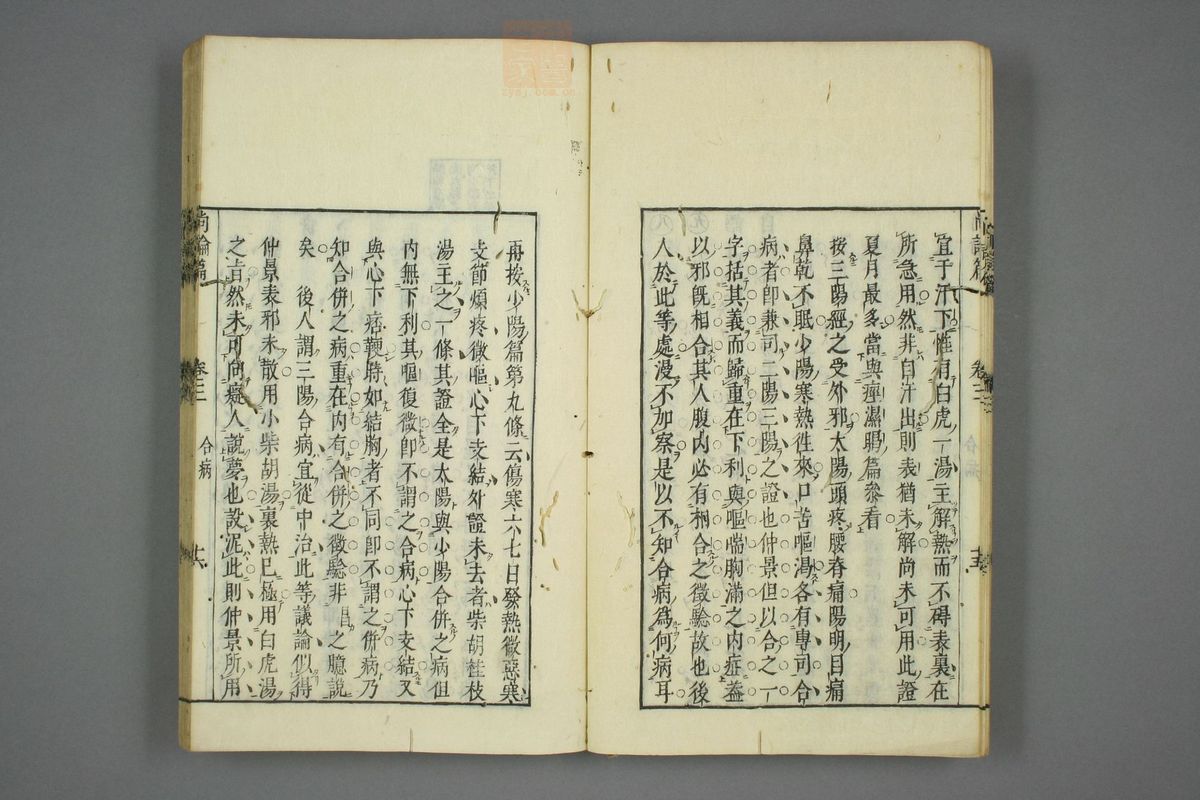 宜于汗下惟有白虎一湯主解熱而不碍表裏在
所急用然非自汗出則表猶未解尚未可用此證
夏月最多當與痙濕暍篇叅看
按三陽經之受外邪太陽頭疼腰脊痛陽明目痛
鼻乾不眠少陽寒熱徃來口苦嘔渴各有專司合
病者卽兼司二陽三陽之證也仲景但以合之一
字括其義而歸重在下利與嘔喘胸滿之内症葢
以邪旣相合其人腹内必有相合之徵驗故也後
人於此等處漫不加察是以不知合病爲何病耳
再按少陽篇第九條云傷寒六七日發熱微惡寒
支節煩疼微嘔心下支結外證未去者柴胡桂枝
湯主之一條其證全是太陽與少陽合併之病但
内無下利其嘔復微卽不謂之合病心下支結又
與心下痞鞕時如結胸者不同卽不謂之併病乃
知合併之病重在内有合併之徵驗非昌之臆說
矣 後人謂三陽合病宜從中治此等議論似得
仲景表邪未散用小柴胡湯裏熱已極用白虎湯
之肯然未可向癡人說夢也設泥此則仲景所用
尚論篇 卷三 合病 十六